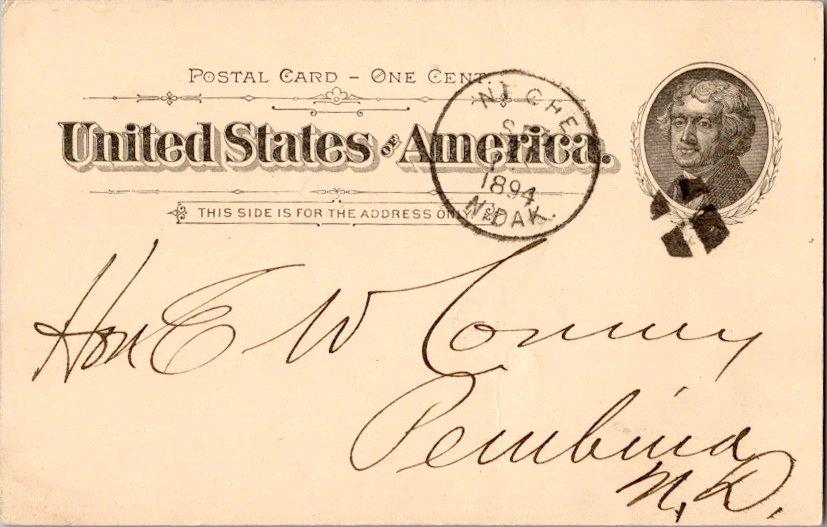 POSTAL CARD – ONE CENT.
United States OF America.
THIS SIDE IS FOR THE ADDRESS ONLY
NECHE
1894
N. DAK.
Hon E W Conmy
Pembina
N. D.